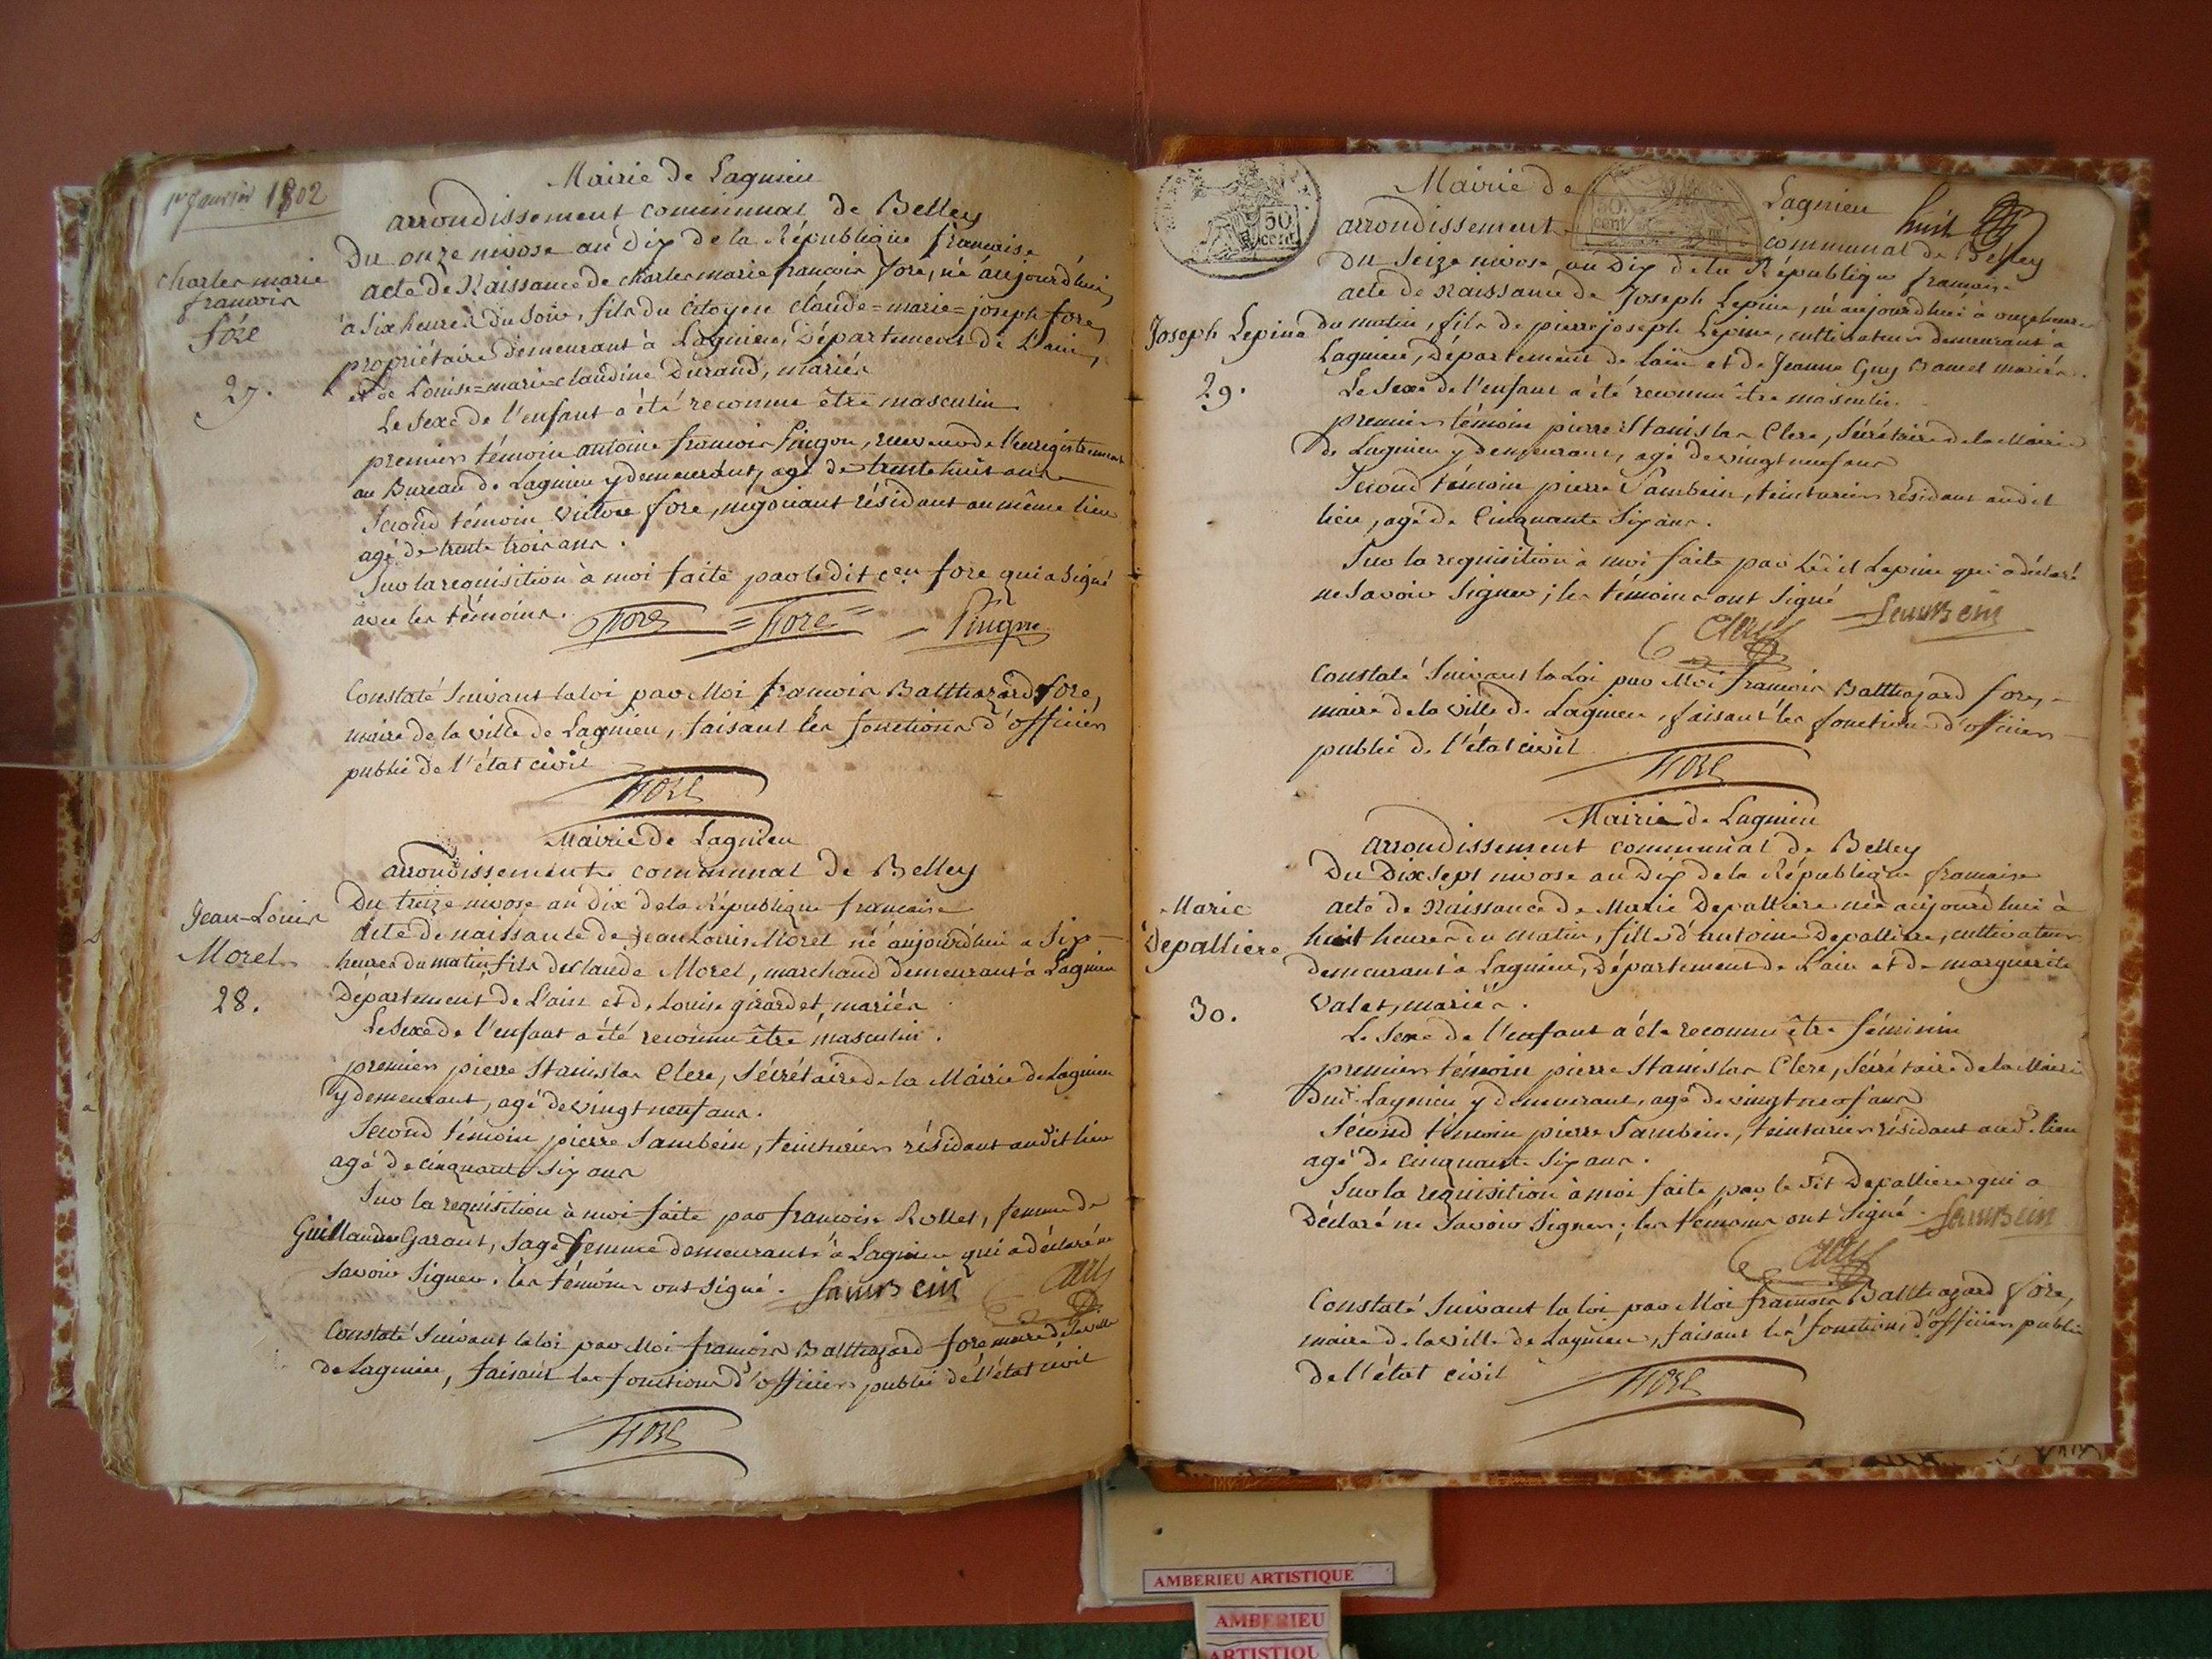 1er Janvier 1802
Mairie de Lagnieu
arrondissement communal de Belley
Du onze nivose an dix de la République francaise
charles marie
francois
fore
27.
acte de Naissance de charles marie francois fore, né aujourd'hui
à six heures du soir, fils du citoyen claude=marie=joseph fore,
propriétaire demeurant à Lagnieu, Département de L'ain,
et de Louise=marie=claudine Durand, mariés
Le sexe de l'enfant a été reconnu être masculin
premier témoin antoine francois Pingon, receveur de l'enregistrement
au Bureau de Lagnieu y demeurant, agé de trente huit ans
Second témoin victor fore, négociant résidant au même lieu
agé de trente trois ans.
Sur la requisition à moi faite par le dit cen fore qui a signé
avec les témoins. Fore =Fore= Pingon
Constaté suivant la loi par Moi francois Balthazard fore,
maire de la ville de Lagnieu, faisant les fonctions d'officier
public de l'état civil
Fore
Mairie de Lagnieu
arrondissement communal de Belley
Du treize nivose an dix de la République francaise
Jean-Louis
Morel
28.
Acte de naissance de jean Louis Morel né aujourd'hui a six
heures du matin, fils de claude Morel, marchand demeurant à Lagnieu
Département de L'ain et de Louise girardet, mariés
Le sexe de l'enfant a été reconnu être masculin.
premier pierre Stanislas Clerc, Sécrétaire de la Mairie de Lagnieu
y demeurant, agé de vingt neuf ans.
Second témoin pierre Sambein, teinturier résidant audit lieu
agé de cinquante six ans
Sur la requisition à moi faite par francoise Rollet, femme de
Guillaume Garant, sage femme demeurante à Lagnieu qui a déclaré ne
savoir signer. les témoins ont signé. Sambein Clerc
Constaté suivant la loi par Moi francois Balthazard fore maire de la ville
de Lagnieu, faisant les fonctions d'officier public de l'état civil
Fore
50
cent
Mairie de Lagnieu
huit
50
cent
arrondissement communal de Belley
Du seize nivose an Dix de la République francaise
Joseph Lepine
29.
acte de naissance de Joseph Lepine, né aujourd'hui à onze heures
du matin, fils de pierre joseph Lepine, cultivateur demeurant à
Lagnieu, Département de Lain et de Jeanne Guy mariés.
Le sexe de l'enfant a été reconnu être masculin.
premier témoin pierre Stanislas Clerc, Sécrétaire de la Mairie
de Lagnieu y demeurant, agé de vingt neuf ans
Second témoin pierre Sambein, teinturier résidant audit
lieu, agé de Cinquante six ans.
Sur la requisition à moi faite par ledit Lepine qui a déclaré
ne savoir signer; les témoins ont signé Sambein
Clerc
Constaté suivant la Loi par Moi francois Balthazard fore,
maire de la ville de Lagnieu, faisant les fonctions d'officier
public de l'état civil
Fore
Mairie de Lagnieu
arrondissement communal de Belley
Du Dix sept nivose an Dix de la République francaise
Marie
Depalliere
30.
acte de Naissance de Marie Depalliere née aujourd'hui à
huit heures du matin, fille d'antoine Depalliere, cultivateur
demeurant à Lagnieu, Département de L'ain et de marguerite
Valet, mariés.
Le sexe de l'enfant a été reconnu être féminin
premier témoin pierre Stanislas Clerc, Sécrétaire de la Mairie
dud. Lagnieu y demeurant, agé de vingt neuf ans
Second témoin pierre Sambein, teinturier résidant aud. lieu
agé de cinquante six ans.
Sur la requisition à moi faite par le dit Depalliere qui a
Déclaré ne savoir signer; les témoins ont signé. Sambein
Clerc
Constaté suivant la loi par Moi francois Balthazard fore,
maire de la ville de Lagnieu, faisant les fonctions d'officier public
de l'état civil
Fore
AMBERIEU ARTISTIQUE
AMBERIEU
ARTISTIQU